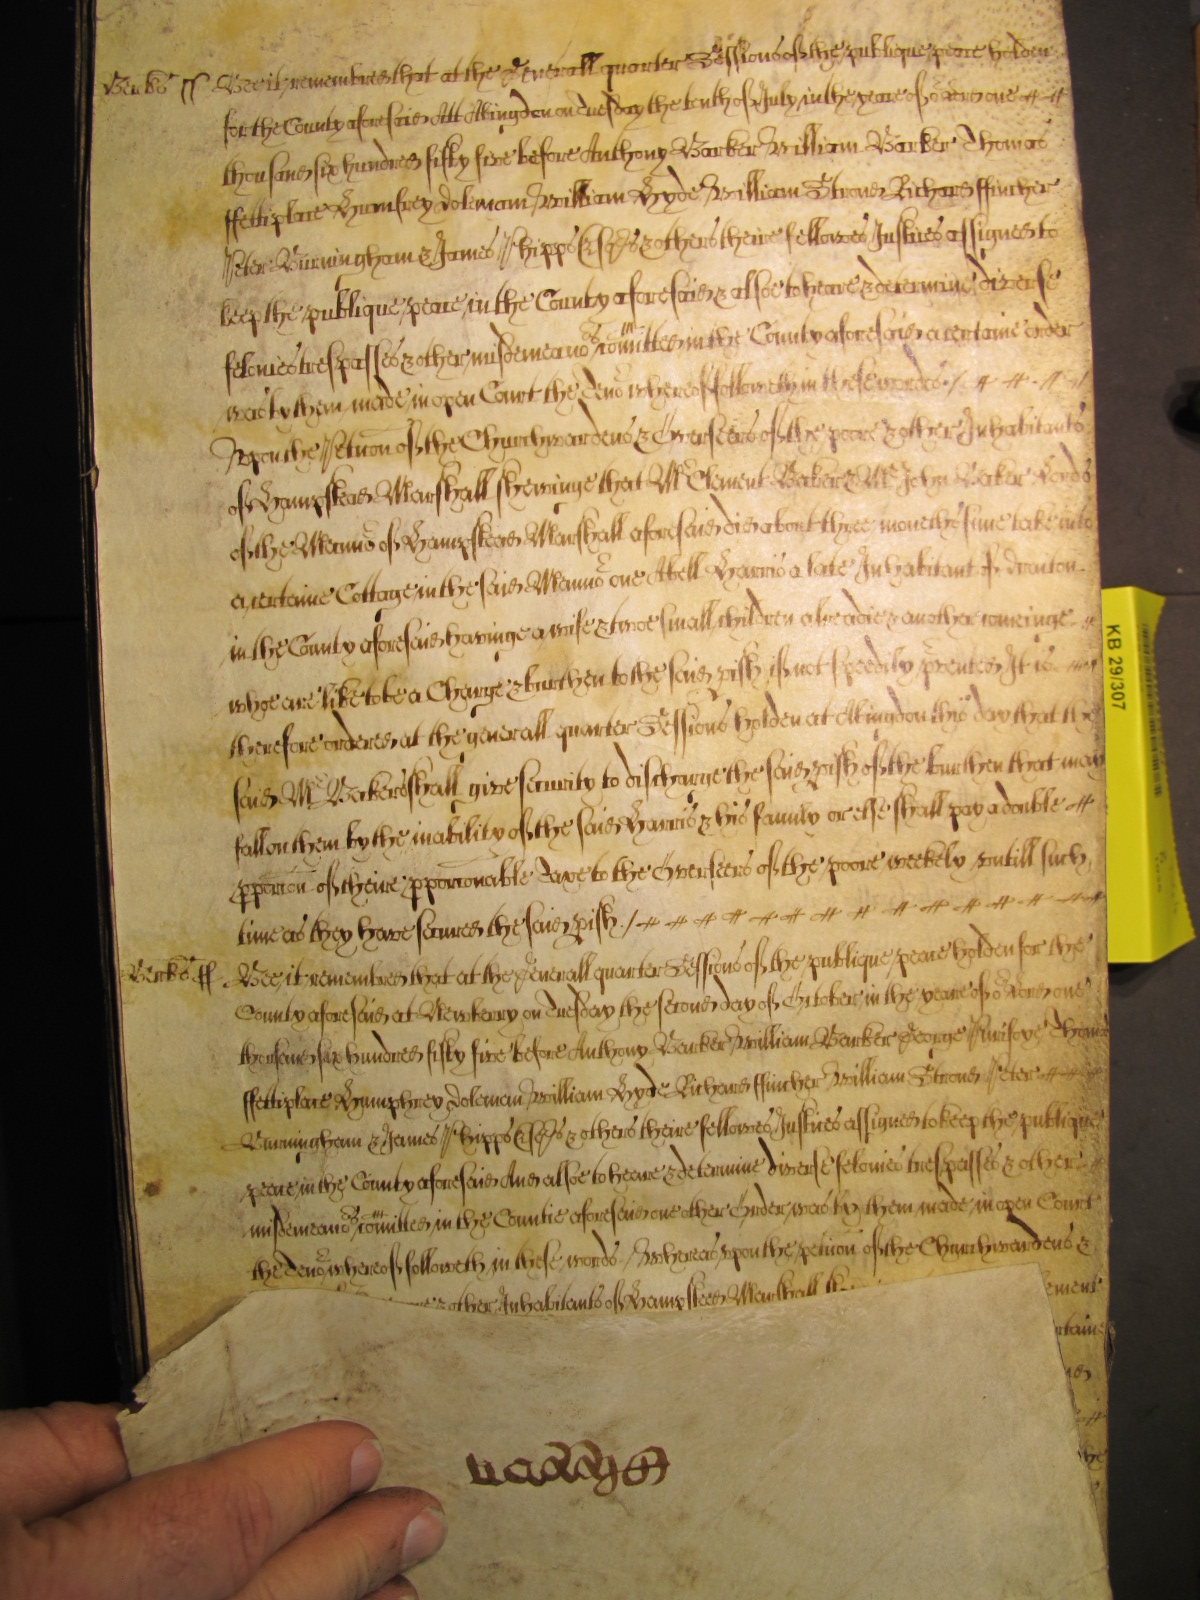 Berks ss Bee it remembred that at the Generall quarter Sessions of the publique peace holden
for the County aforesaid Att Abingdon on Tuesday the tenth of July in the yeare of o Lord one
thousand six hundred fifty five before Anthony Barker William Barker Thomas
ffettiplace Humfrey Doleman William Hyde William Strond Richard ffincher
Peter Burningham & James Phipps Esqrs & others theire fellowes Justices assigned to
keep the publique peace in the County aforesaid & alsoe to heare & determine diverse
felonies trespasses & other misdemeanors comitted in the County aforesaid a certaine order
was by them made in open Court the tenor whereof followeth in these wordes /
Upon the Peticon of the Churchwardens & Overseers of the poore & other Inhabitants
of Hampsteed Marshall shewinge that Mr Clement Baker & Mr John Baker Lords
of the Mannor of Hampsteed Marshall aforesaid did about three moneths since take into
a certaine Cottage in the said Mannor one Abell Harris a late Inhabitant of Draiton
in the County aforesaid havinge a wife & twoe small children alreadie & another comeinge
whoe are like to be a Charge & burthen to the said pish if not speedily prvented It is
therefore ordered at the generall quarter Sessions holden at Abingdon this day that the
said Mr Bakers shall give security to discharge the said pish of the burthen that may
fall on them by the inability of the said Harris & his family or else shall pay a double
pporcon of theire pporconable Taxe to the Overseers of the poore weekely untill such
time as they have secured the said pish /
Berks ss Bee it remembred that at the Generall quarter Sessions of the publique peace holden for the
County aforesaid at Newberry on Tuesday the second day of October in the yeare of o Lord one
thousand six hundred fifty five before Anthony Barker William Barker George Purefoye Thomas
ffettiplace Humphrey Doleman William Hyde Richard ffincher William Strond Peter
Burningham & James Phipps Esqrs & others theire fellowes Justices assigned to keep the publique
peace in the County aforesaid And alsoe to heare & determine diverse felonies trespasses & other
misdemeanors comitted in the Countie aforesaid one other Order was by them made in open Court
the tenor whereof followeth in these words / Whereas upon the peticon of the Churchwardens &
& other Inhabitants of Hampsteed Marshall
KB 29/307